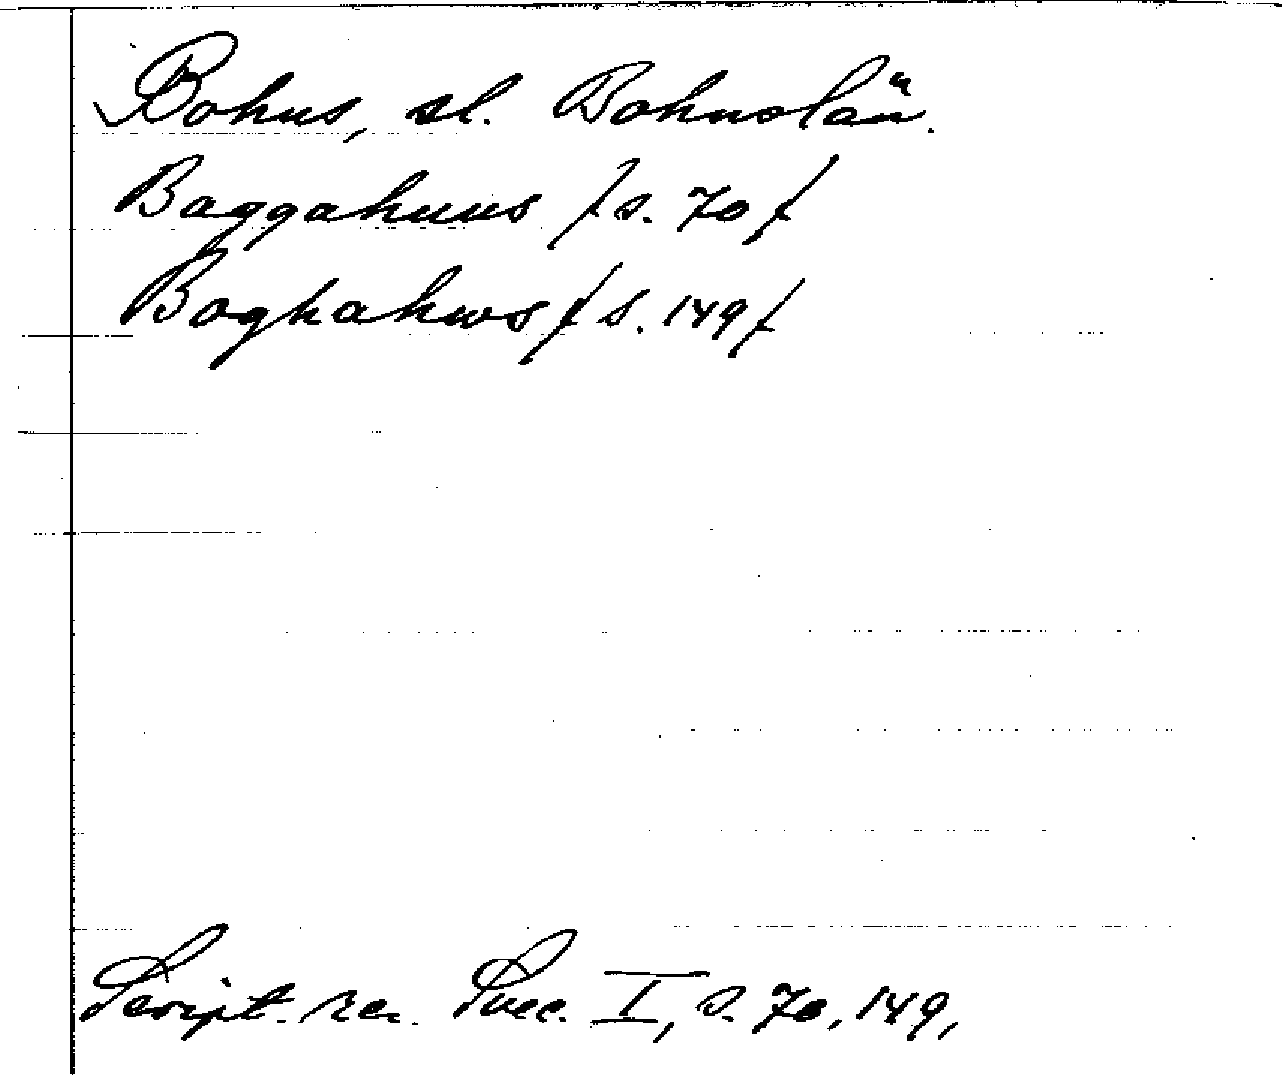 Bohus, sl. Bohuslän.
Baggahuus /s. 70/
Baghahws /s. 149/
Script. rer. Suec. I, s. 70, 149,